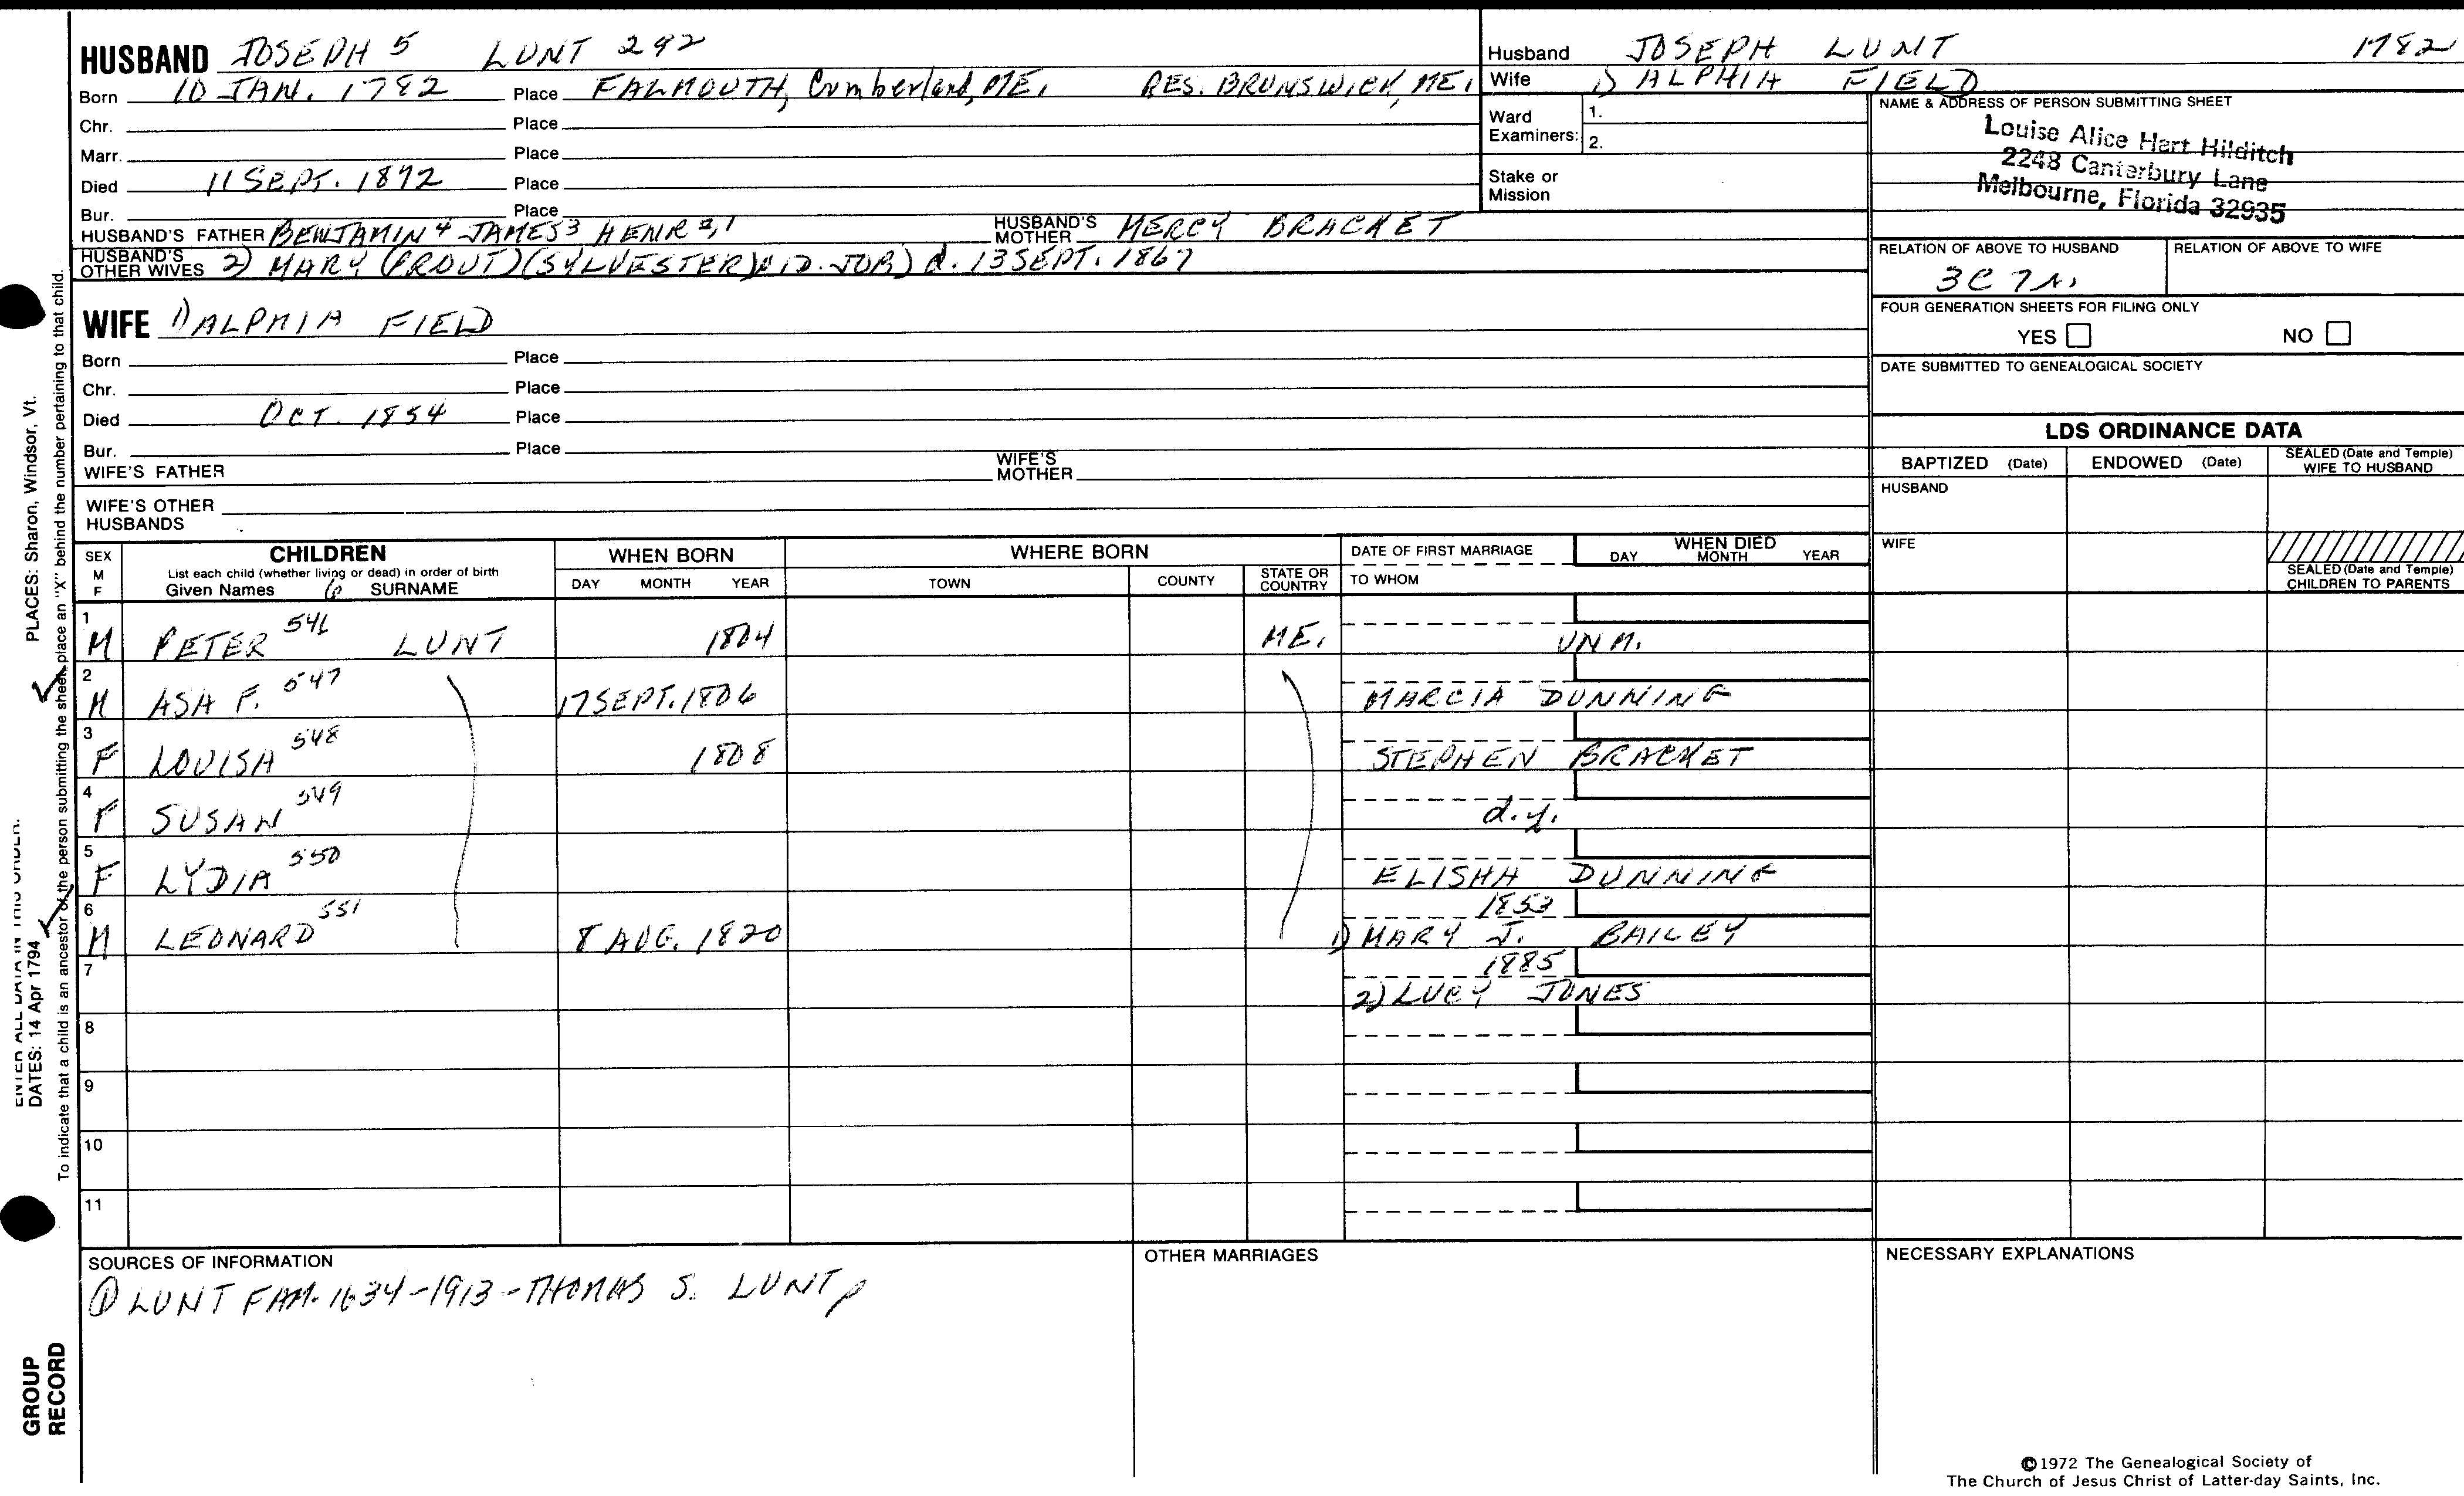 HUSBAND JOSEPH 5 LUNT 292
Born 10 JAN. 1782 Place FALMOUTH, Cumberland, ME. RES. BRUNSWICK, ME.
Chr. Place
Marr. Place
Died 11 SEPT. 1872 Place
Bur. Place
HUSBAND'S FATHER BENJAMIN 4 JAMES 3 HENR 2,1 HUSBAND'S MOTHER MERCY BRACKET
HUSBAND'S OTHER WIVES 2) MARY (PROUT) (SYLVESTER) (WID. JOB) d. 13 SEPT. 1867
Husband JOSEPH LUNT 1782
Wife 1) ALPHIA FIELD
Ward Examiners: 1.
2.
Stake or Mission
NAME & ADDRESS OF PERSON SUBMITTING SHEET
Louise Alice Hart Hilditch
2248 Canterbury Lane
Melbourne, Florida 32935
RELATION OF ABOVE TO HUSBAND RELATION OF ABOVE TO WIFE
3C 7r.
FOUR GENERATION SHEETS FOR FILING ONLY
YES NO
DATE SUBMITTED TO GENEALOGICAL SOCIETY
WIFE 1) ALPHIA FIELD
Born Place
Chr. Place
Died OCT. 1854 Place
Bur. Place
WIFE'S FATHER WIFE'S MOTHER
WIFE'S OTHER HUSBANDS
LDS ORDINANCE DATA
BAPTIZED (Date) ENDOWED (Date) SEALED (Date and Temple) WIFE TO HUSBAND
HUSBAND
WIFE
SEALED (Date and Temple) CHILDREN TO PARENTS
SEX M F CHILDREN WHEN BORN WHERE BORN DATE OF FIRST MARRIAGE WHEN DIED
List each child (whether living or dead) in order of birth DAY MONTH YEAR
Given Names 6 SURNAME DAY MONTH YEAR TOWN COUNTY STATE OR COUNTRY TO WHOM
1 M PETER 546 LUNT 1804 ME. UNM.
2 M ASA F. 547 17 SEPT. 1806 MARCIA DUNNING
3 F LOUISA 548 1808 STEPHEN BRACKET
4 F SUSAN 549 d.y.
5 F LYDIA 550 ELISHA DUNNING
6 M LEONARD 551 8 AUG. 1820 1853
1) MARY J. BAILEY
7 1885
2) LUCY JONES
8
9
10
11
SOURCES OF INFORMATION OTHER MARRIAGES NECESSARY EXPLANATIONS
① LUNT FAM. 1634-1913 - THOMAS S. LUNT
©1972 The Genealogical Society of
The Church of Jesus Christ of Latter-day Saints, Inc.
PLACES: Sharon, Windsor, Vt.
ENTER ALL DATA IN THIS ORDER.
DATES: 14 Apr 1794
To indicate that a child is an ancestor of the person submitting the sheet, place an "X" behind the number pertaining to that child.
GROUP
RECORD